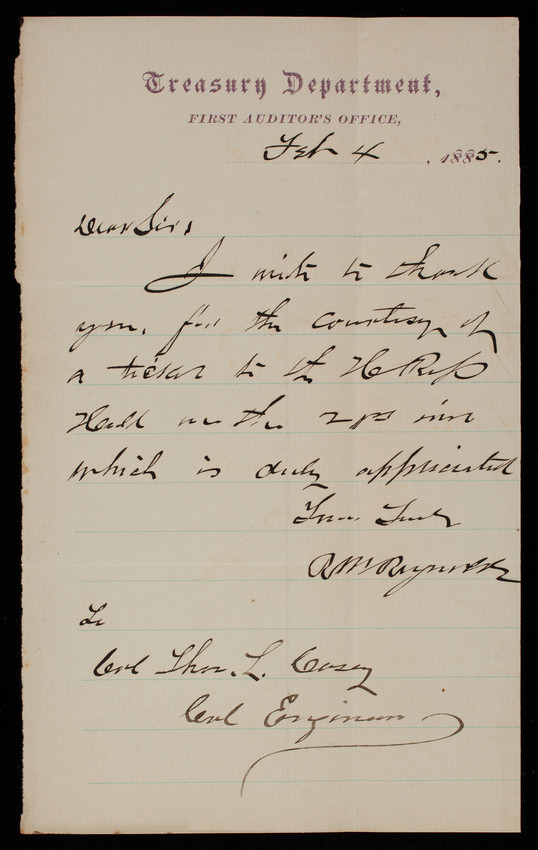 Treasury Department,
FIRST AUDITOR'S OFFICE,
Feb 4, 1885.
Dear Sir,
I write to thank
you, for the courtesy of
a ticket to the H Reps
Hall on the 21st inst
which is duly appreciated
Yours Truly
R M Reynolds
To
Col Thos. L. Casey
Col Engineers